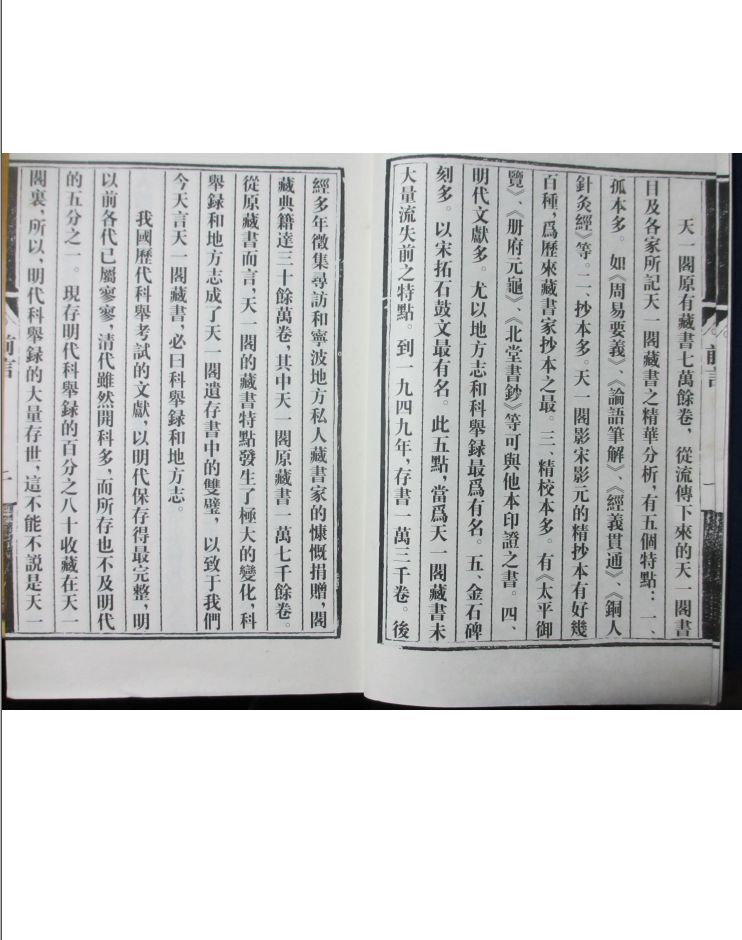 天一閣原有藏書七萬餘卷，從流傳下來的天一閣書
目及各家所記天一閣藏書之精華分析，有五個特點：一、
孤本多。如《周易要義》、《論語筆解》、《經義貫通》、《銅人
針灸經》等。二、抄本多。天一閣影宋影元的精抄本有好幾
百種，爲歷來藏書家抄本之最。三、精校本多。有《太平御
覽》、《册府元龜》、《北堂書鈔》等可與他本印證之書。四、
明代文獻多。尤以地方志和科舉録最爲有名。五、金石碑
刻多。以宋拓石鼓文最有名。此五點，當爲天一閣藏書未
大量流失前之特點。到一九四九年，存書一萬三千卷。後
前言
一
經多年徵集尋訪和寧波地方私人藏書家的慷慨捐贈，閣
藏典籍達三十餘萬卷，其中天一閣原藏書一萬七千餘卷。
從原藏書而言，天一閣的藏書特點發生了極大的變化，科
舉録和地方志成了天一閣遺存書中的雙璧，以致于我們
今天言天一閣藏書，必曰科舉録和地方志。
我國歷代科舉考試的文獻，以明代保存得最完整，明
以前各代已屬寥寥，清代雖然開科多，而所存也不及明代
的五分之一。現存明代科舉録的百分之八十收藏在天一
閣裏，所以，明代科舉録的大量存世，這不能不説是天一
前言